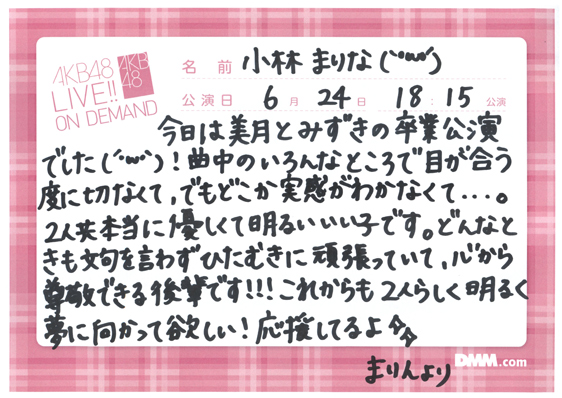 AKB48
LIVE!!
ON DEMAND
AKB
48
名前 小林 まりな(´・ω・`)
公演日 6月 24日 18:15 公演
今日は美月とみずきの卒業公演
でした(´・ω・`)!曲中のいろんなところで目が合う
度に切なくて、でもどこか実感がわかなくて・・・。
2人共本当に優しくて明るいいい子です。どんなと
きも文句を言わずひたむきに頑張っていて、心から
尊敬できる後輩です!!!これからも2人らしく明るく
夢に向かって欲しい!応援してるよ
まりんより
DMM.com